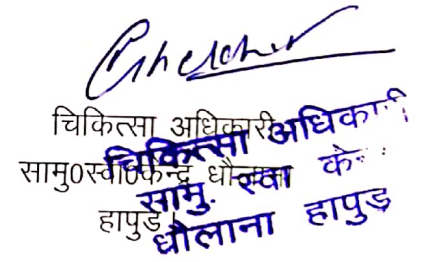 चिकित्सा अधिकारी
सामु0स्वा0केन्द्र धौलाना
हापुड़।
चिकित्सा अधिकारी
सामु. स्वा के
धौलाना हापुड़